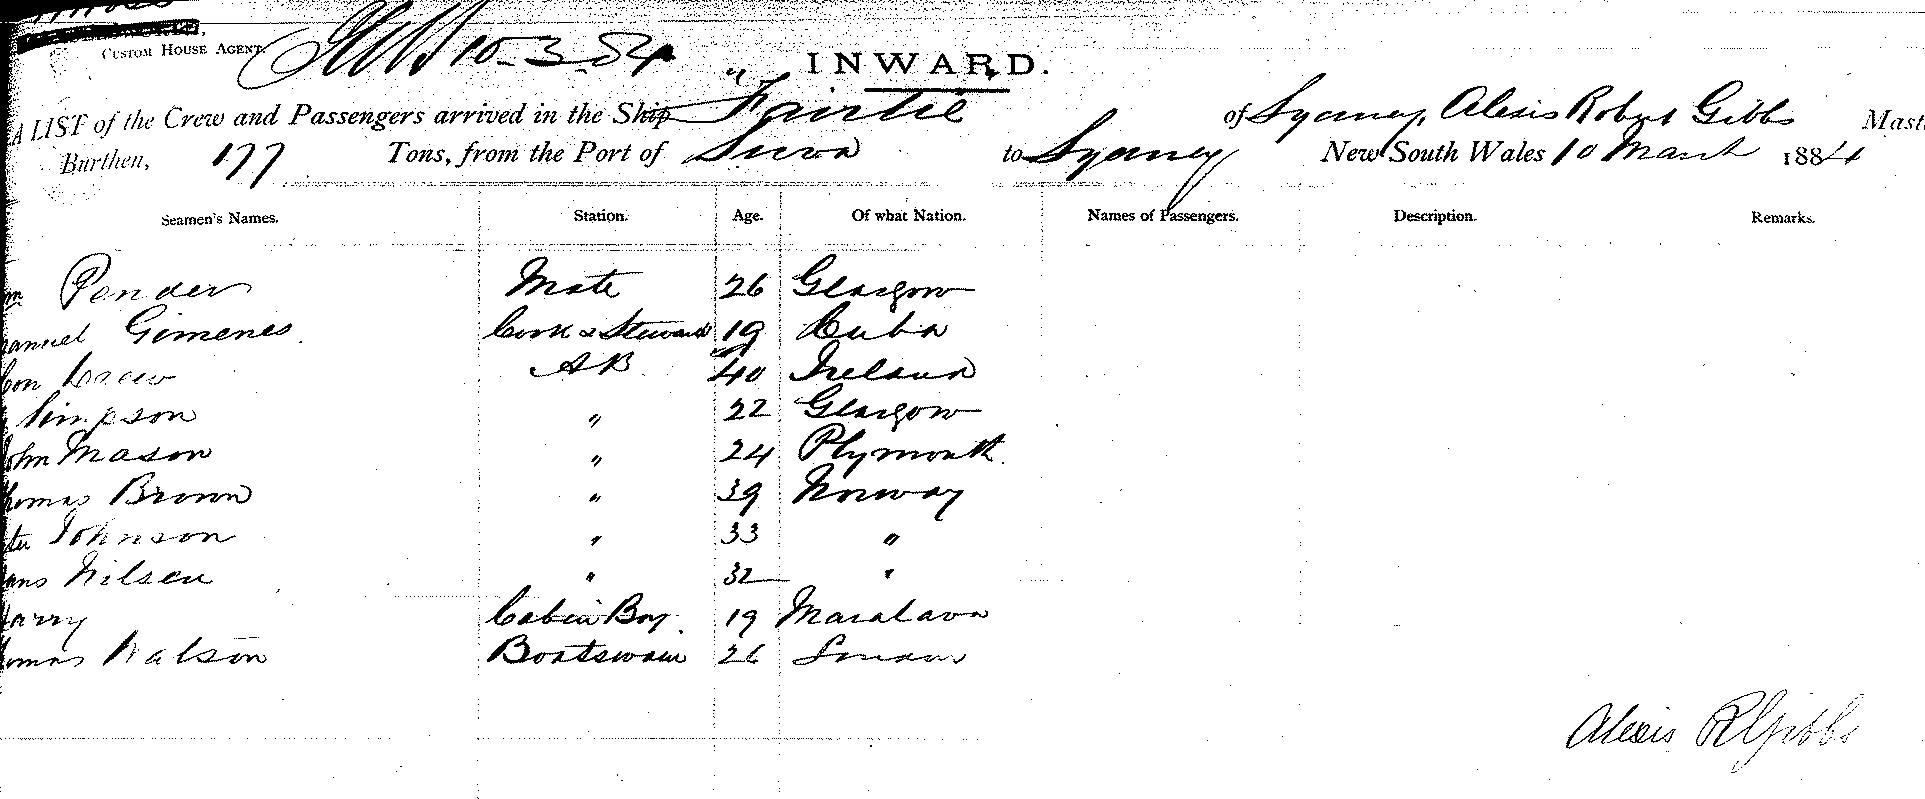 CUSTOM HOUSE AGENT
10-3-84
" INWARD.
A LIST of the Crew and Passengers arrived in the Ship Fairlie of Sydney, Alexis Robert Gibbs Mast
Burthen, 177 Tons, from the Port of Suva to Sydney New South Wales 10 March 1884
Seamen's Names. Station. Age. Of what Nation. Names of Passengers. Description. Remarks.
m Pender Mate 26 Glasgow
anuel Gimenes Cook & Steward 19 Cuba
Con AB 40 Ireland
Simpson " 22 Glasgow
John Mason " 24 Plymouth
homas Brown " 39 Norway
ter Johnson " 33 "
ans Nilsen " 32 "
Harry Cabin Boy. 19 Maralava
omas Watson Boatswain 26
Alexis R Gibbs